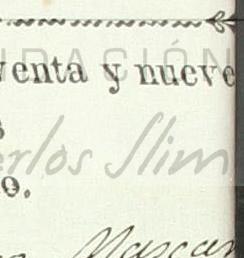 FUNDACIÓN
venta y nueve
s
Carlos Slim
o.
Mascar